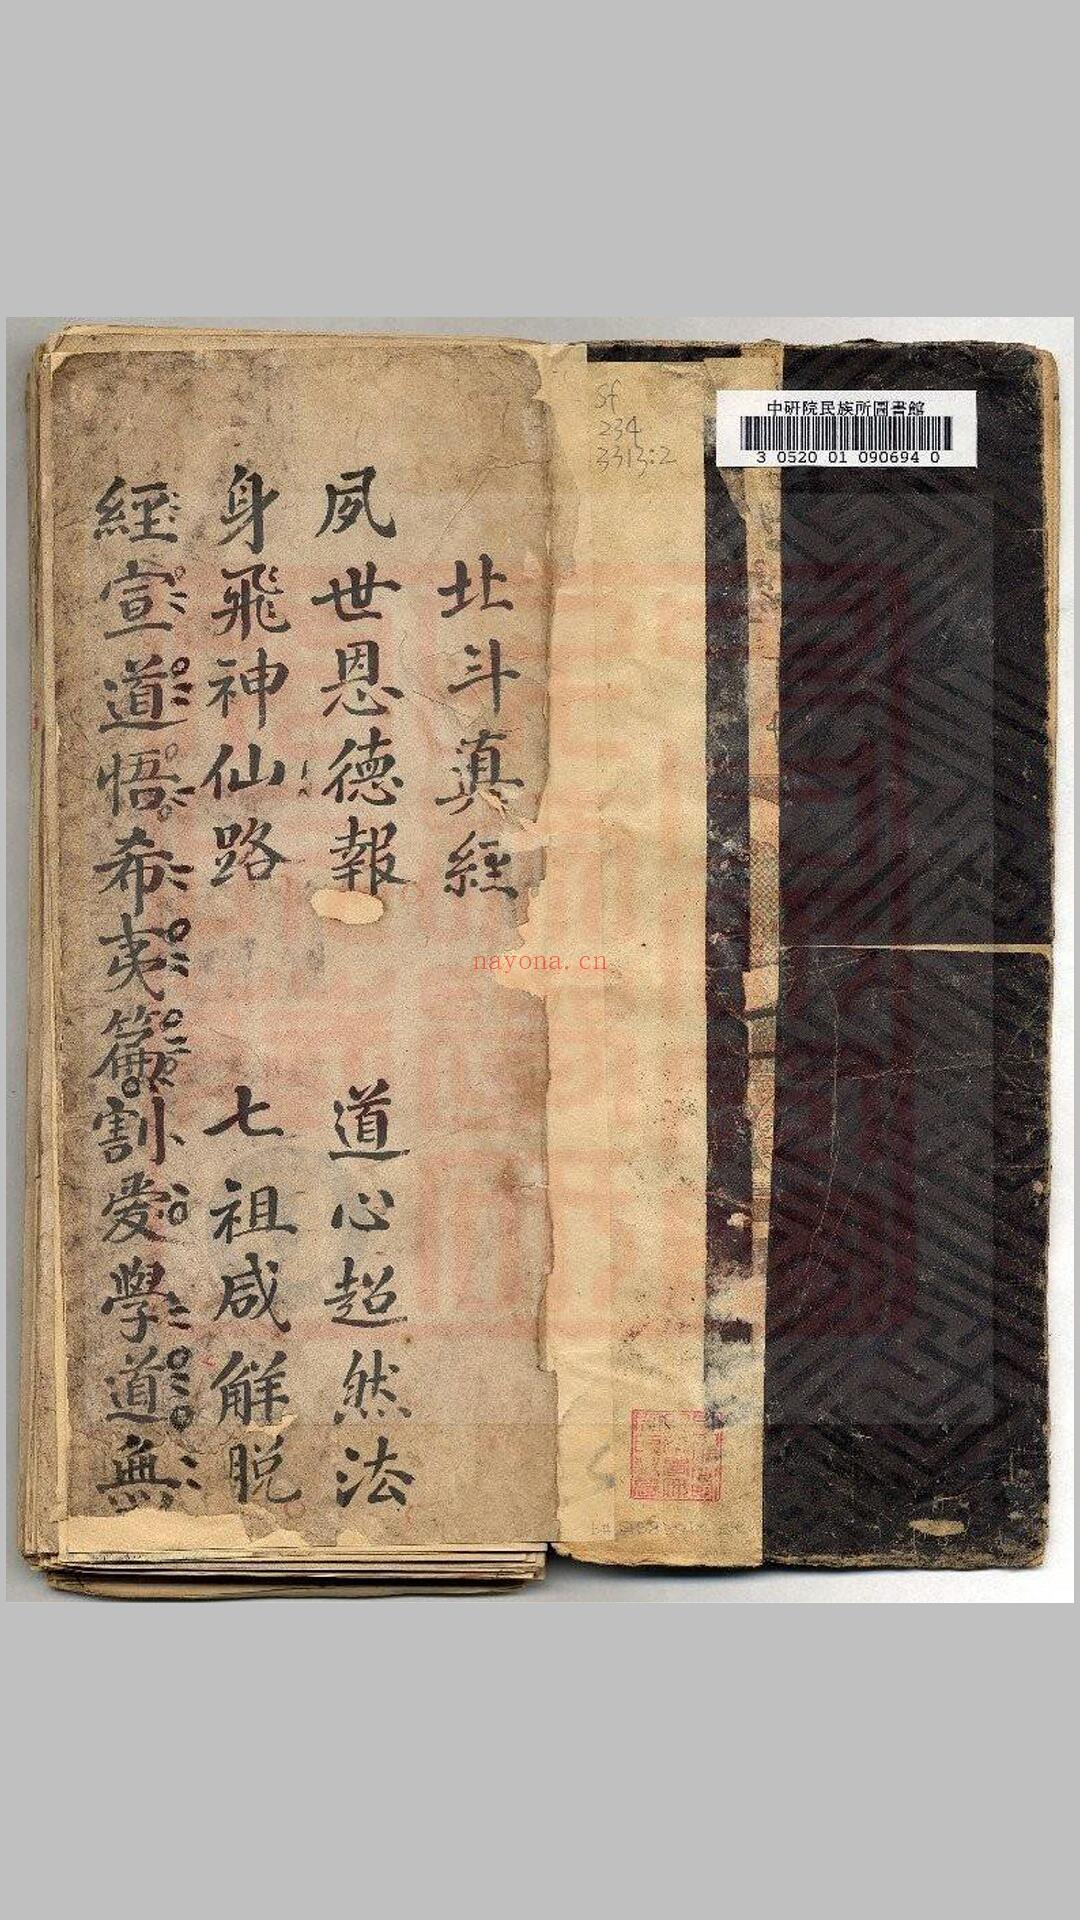 中研院民族所圖書館
3 0520 01 090694 0
Sf
234
3313:2
北斗真經
夙世恩德報 道心超然法
身飛神仙路 七祖咸解脱
經宣道悟希夷籥割爱學道無
nayona.cn